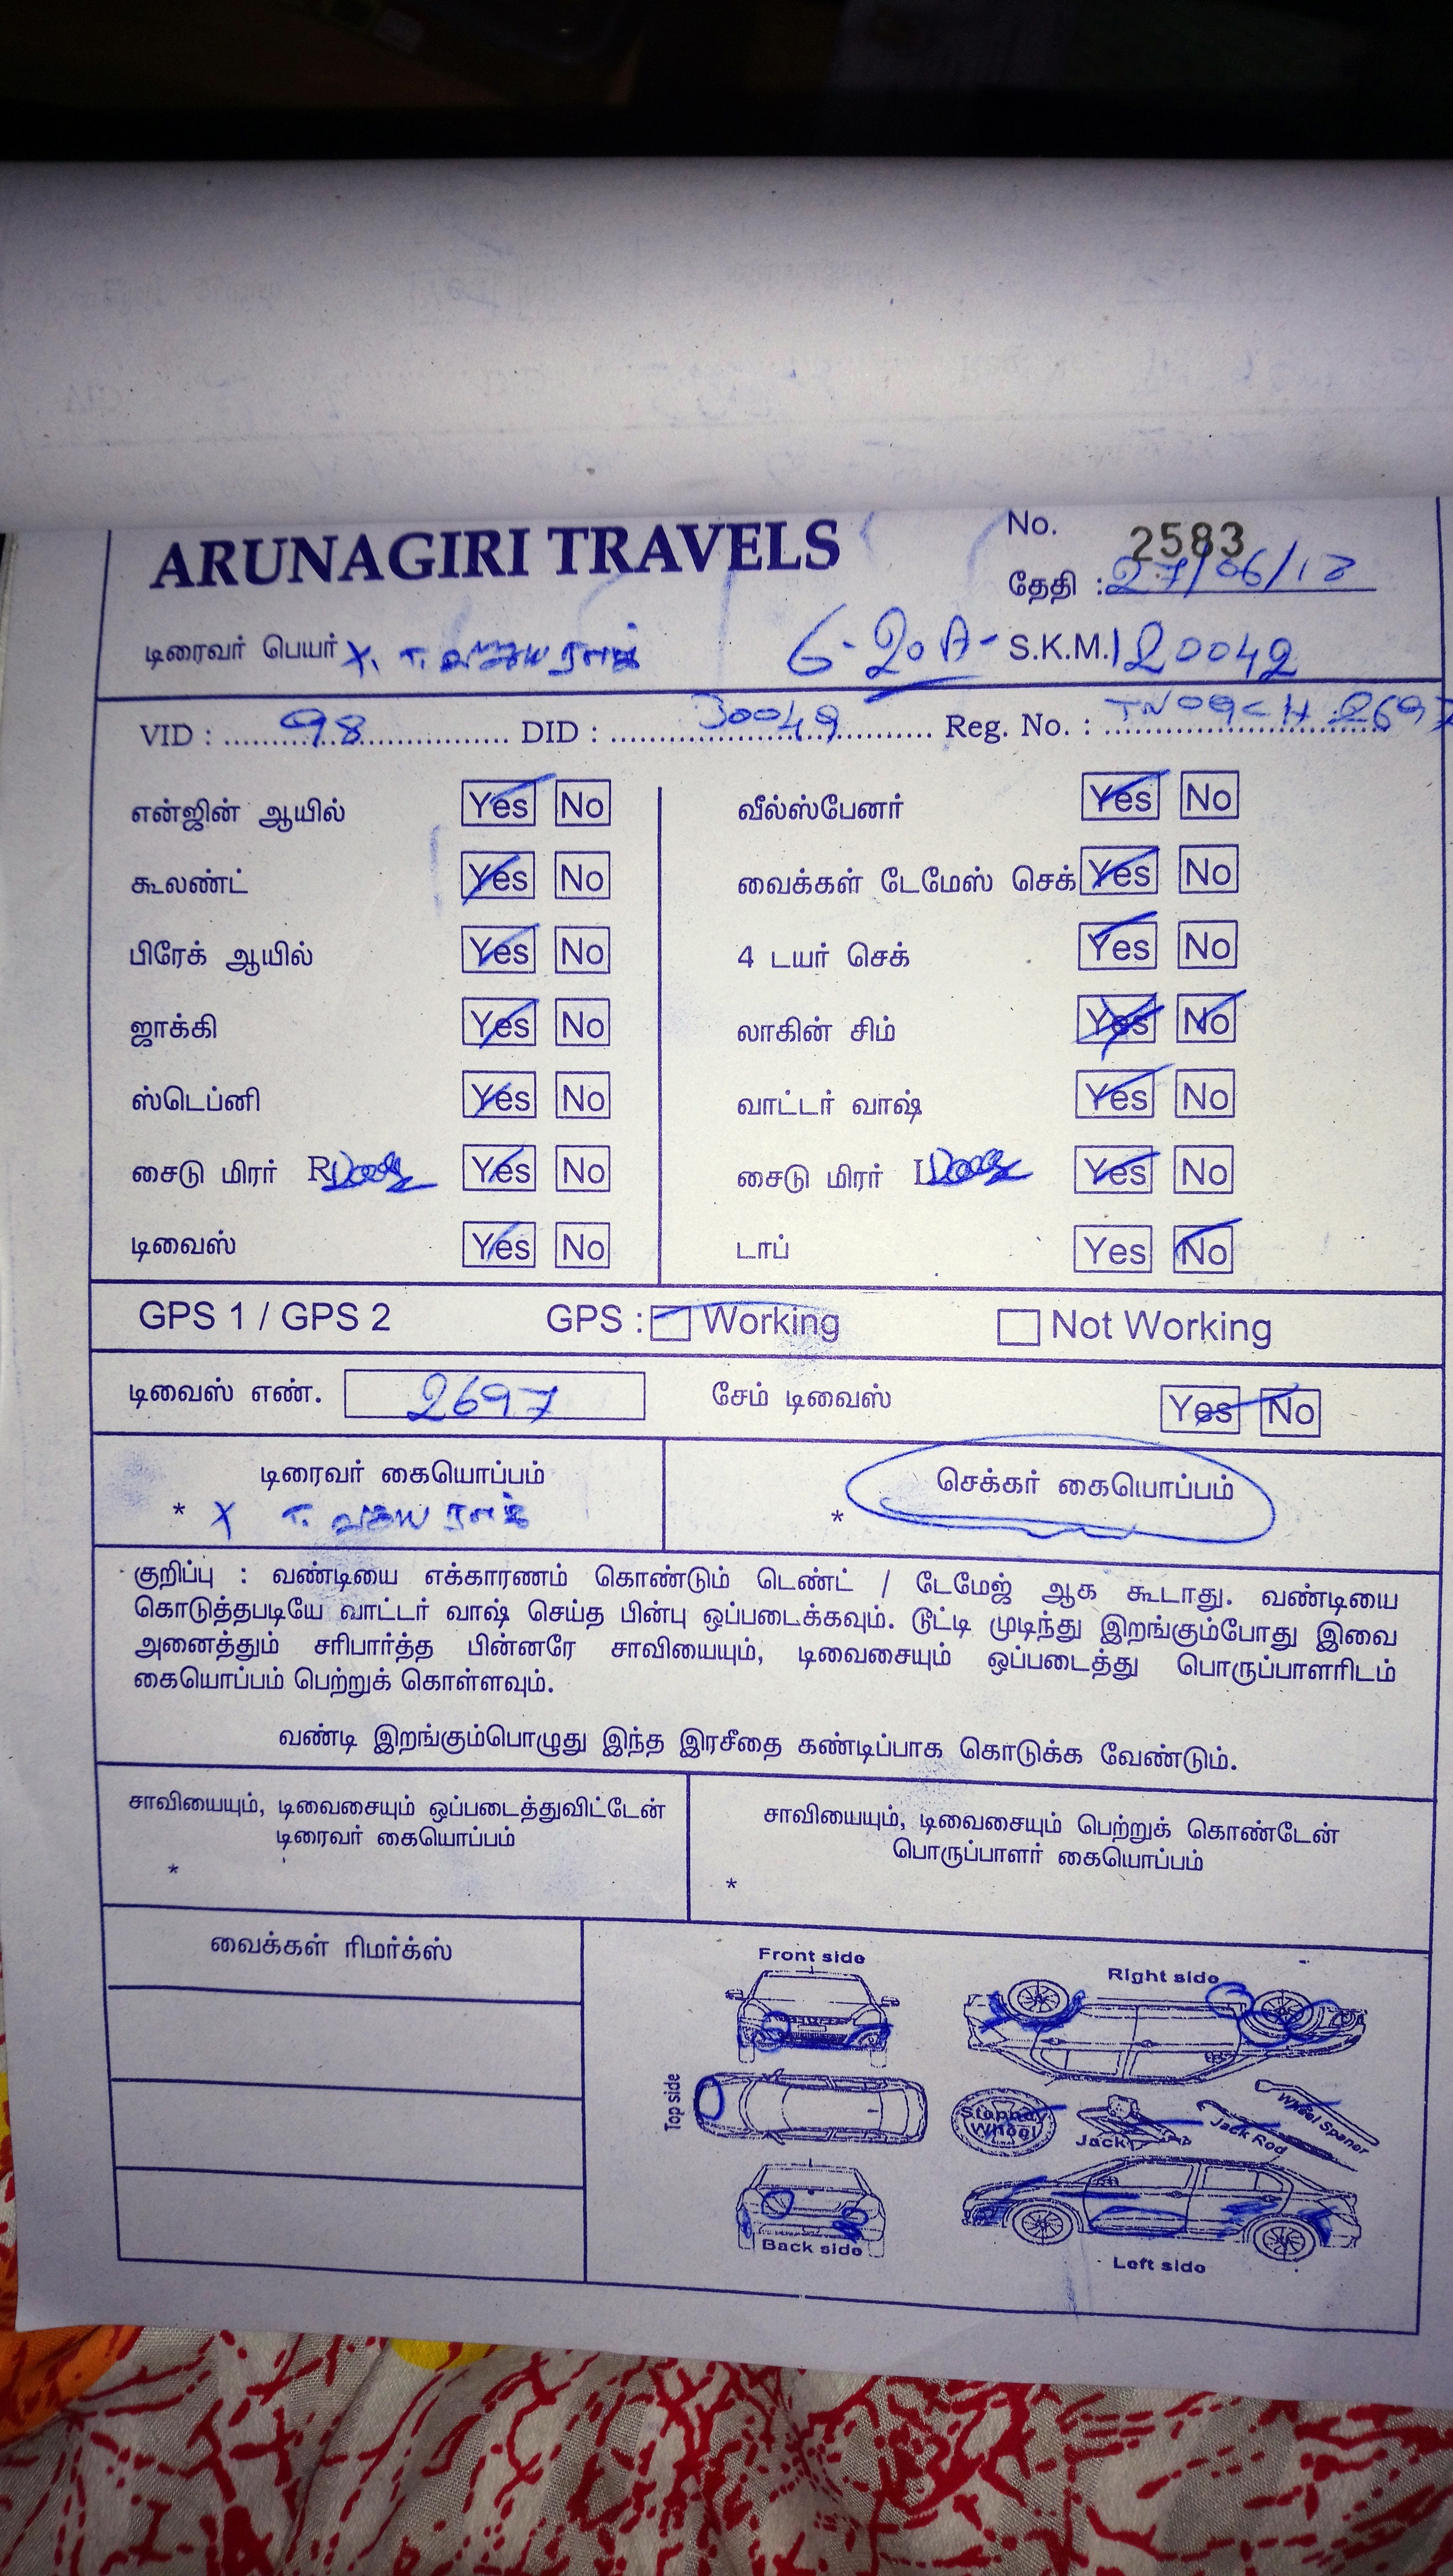 ARUNAGIRI TRAVELS
No. 2583
தேதி : 27/06/18
டிரைவர் பெயர் X. 6-20 A- S.K.M. 120042
VID : 98 DID : 30049 Reg. No. : TN09CH 2697
என்ஜின் ஆயில் Yes No வீல்ஸ்பேனர் Yes No
கூலண்ட் Yes No வைக்கள் டேமேஸ் செக் Yes No
பிரேக் ஆயில் Yes No 4 டயர் செக் Yes No
ஜாக்கி Yes No லாகின் சிம் Yes No
ஸ்டெப்னி Yes No வாட்டர் வாஷ் Yes No
சைடு மிரர் R Yes No சைடு மிரர் L Yes No
டிவைஸ் Yes No டாப் Yes No
GPS 1 / GPS 2 GPS : Working Not Working
டிவைஸ் எண். 2697 சேம் டிவைஸ் Yes No
டிரைவர் கையொப்பம் செக்கர் கையொப்பம்
* X *
குறிப்பு : வண்டியை எக்காரணம் கொண்டும் டெண்ட் / டேமேஜ் ஆக கூடாது. வண்டியை
கொடுத்தபடியே வாட்டர் வாஷ் செய்த பின்பு ஒப்படைக்கவும். டூட்டி முடிந்து இறங்கும்போது இவை
அனைத்தும் சரிபார்த்த பின்னரே சாவியையும், டிவைசையும் ஒப்படைத்து பொருப்பாளரிடம்
கையொப்பம் பெற்றுக் கொள்ளவும்.
வண்டி இறங்கும்பொழுது இந்த இரசீதை கண்டிப்பாக கொடுக்க வேண்டும்.
சாவியையும், டிவைசையும் ஒப்படைத்துவிட்டேன் சாவியையும், டிவைசையும் பெற்றுக் கொண்டேன்
டிரைவர் கையொப்பம் பொருப்பாளர் கையொப்பம்
* *
வைக்கள் ரிமர்க்ஸ்
Front side Right side
Top side Stepney Wheel Jack Jack Rod Wheel Spaner
Back side Left side